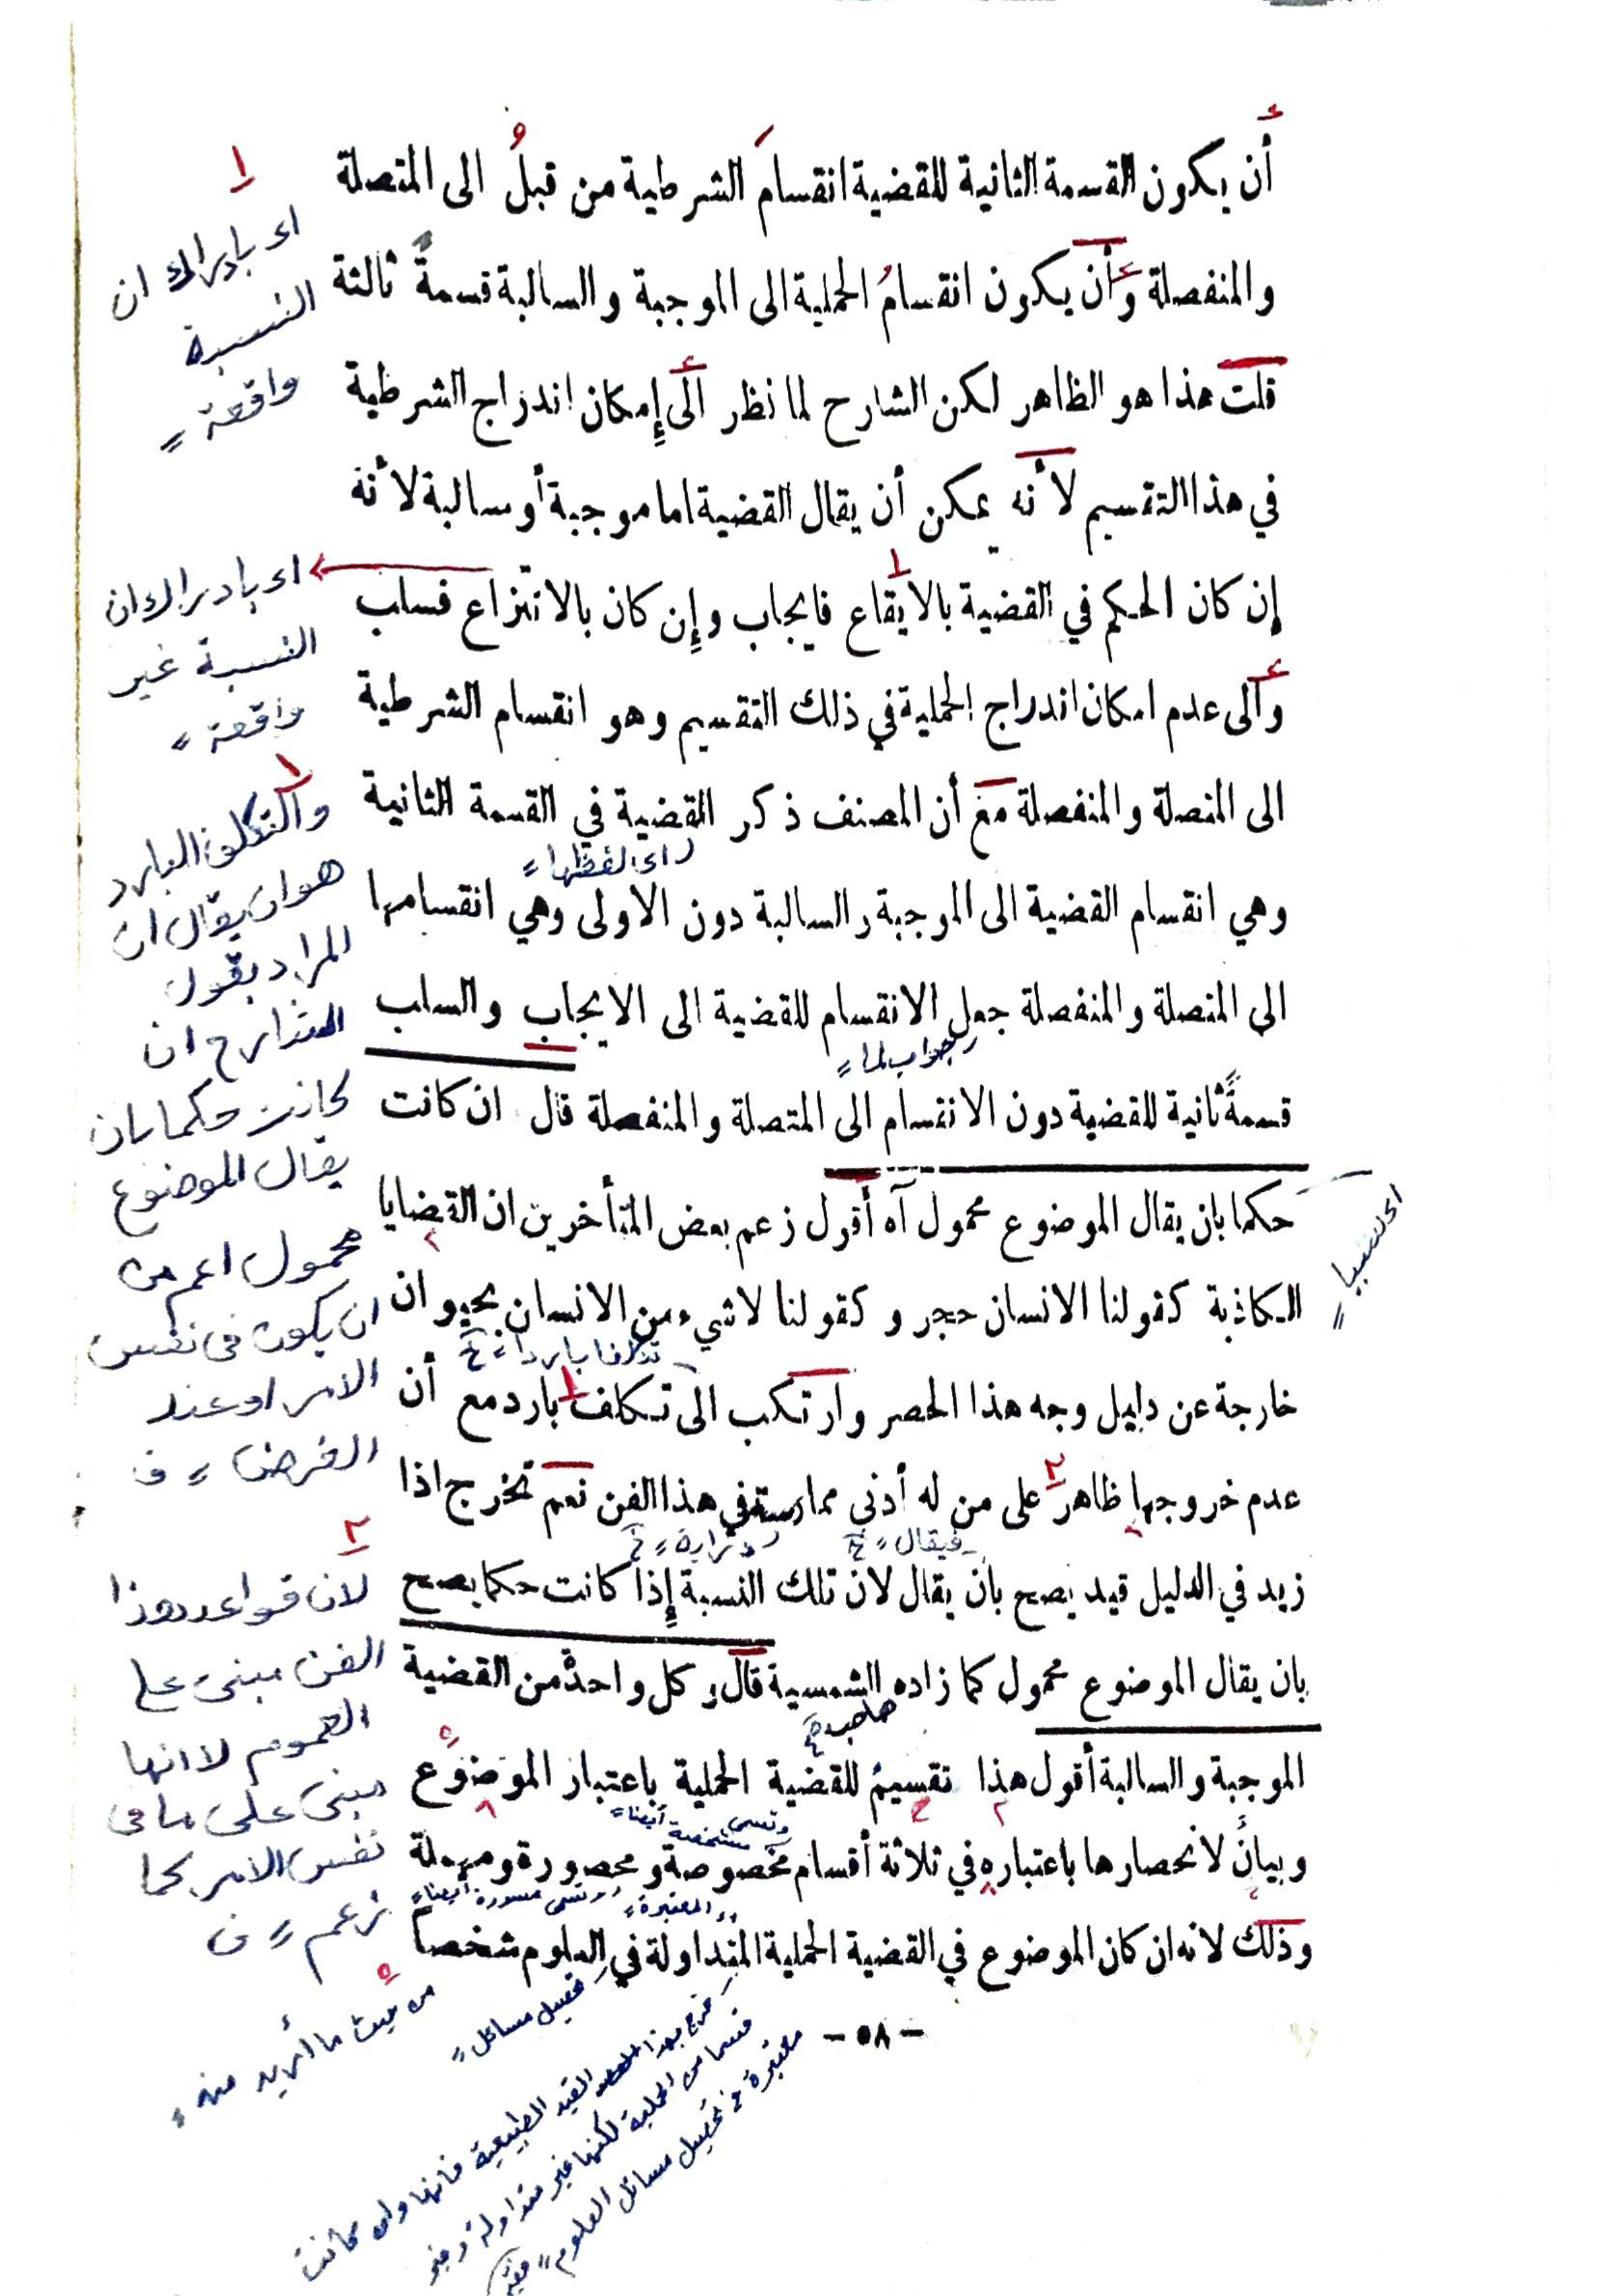 أن يكون القسمة الثانية للقضية انقسامَ الشرطية من قبلُ الى المتصلة
والمنفصلة وأن يكون انقسامُ الحملية الى الموجبة والسالبة قسمةً ثالثة
قلت هذا هو الظاهر لكن الشارح لما نظر الى إمكان اندراج الشرطية
في هذا التقسيم لأنه يمكن أن يقال القضية اما موجبة أو سالبة لأنه
إن كان الحكم في القضية بالايقاع فايجاب وإن كان بالانتزاع فسلب
والى عدم امكان اندراج الحملية في ذلك التقسيم وهو انقسام الشرطية
الى المتصلة والمنفصلة مع أن المصنف ذكر القضية في القسمة الثانية
اى لفظها
وهي انقسام القضية الى الموجبة والسالبة دون الاولى وهي انقسامها
الى المتصلة والمنفصلة جعل الانقسام للقضية الى الايجاب والسلب
جواب لما
قسمةً ثانية للقضية دون الانقسام الى المتصلة والمنفصلة قال ان كانت
حكما بان يقال الموضوع محمول آه أقول زعم بعض المتأخرين ان القضايا
الكاذبة كقولنا الانسان حجر وكقولنا لاشيء من الانسان بحيوان
تكلفا باردا خ
خارجة عن دليل وجه هذا الحصر وارتكب الى تكلف بارد مع أن
عدم خروجها ظاهر على من له أدنى ممارسة في هذا الفن نعم تخرج اذا
فيقال خ
زيد في الدليل قيد يصح بان يقال لان تلك النسبة إذا كانت حكما يصح
بان يقال الموضوع محمول كما زاده الشمسية قال وكل واحدة من القضية
صاحب خ
الموجبة والسالبة أقول هذا تقسيمٌ للقضية الحملية باعتبار الموضوع
وتسمى شخصية أيضا
وبيانٌ لانحصارها باعتباره في ثلاثة أقسام مخصوصة ومحصورة ومهملة
وتسمى مسورة ايضا
المعتبرة
وذلك لانه ان كان الموضوع في القضية الحملية المتداولة في العلوم شخصا
تحصيل مسائل
- ٥٨ -
١
اى بادراك ان
النسبة
واقعة
اى بادراك ان
النسبة غير
واقعة
١
والتكلف البارد
هو ان يقال ان
المراد بقول
الشارح ان
كانت حكما بان
يقال الموضوع
محمول اعم من
ان يكون فى نفس
الامر او عند
الفرض
٢
لان قواعد هذا
الفن مبنى على
العموم لا انها
مبنى على ما فى
نفس الامر كما
زعم
من حيث ما أريد منه
اى نسبيا
خرج بهذا القيد الطبيعية فانها وان كانت
قسما من الحملية لكنها غير متداولة وغير
معتبرة فى تحصيل مسائل العلوم